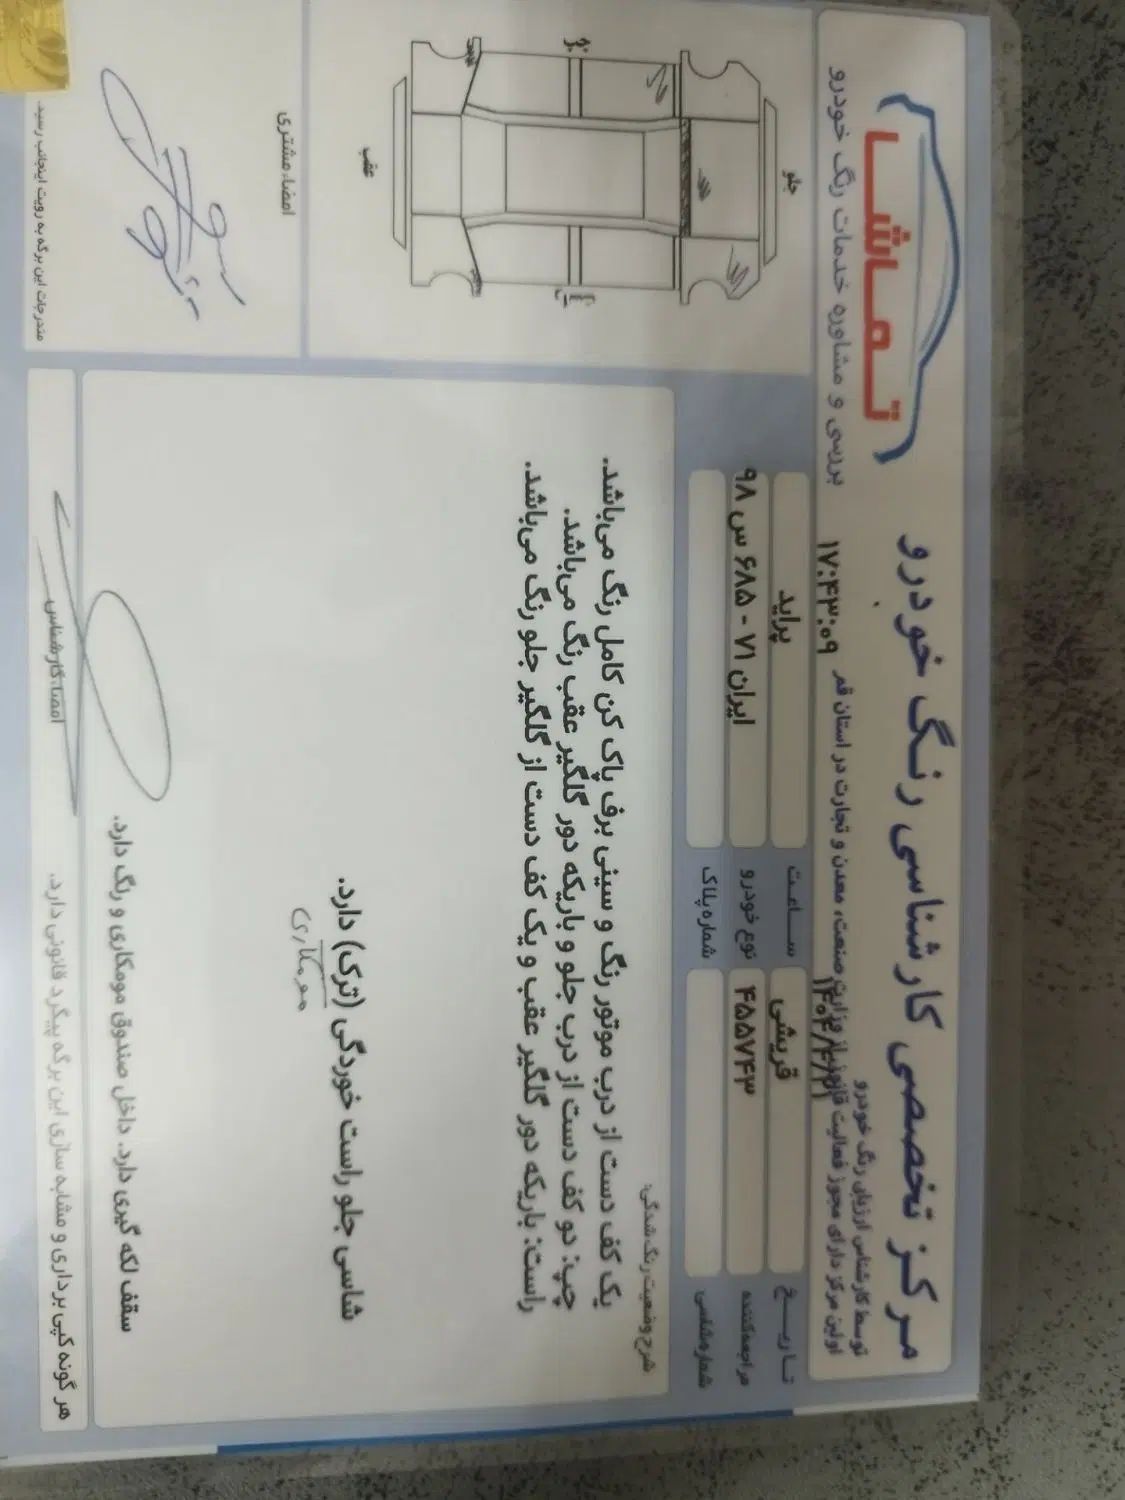 مرکز تخصصی کارشناسی رنگ خودرو
توسط کارشناس ارزیاب رنگ خودرو
اولین مرکز دارای مجوز فعالیت قانونی از وزارت صنعت، معدن و تجارت در استان قم
تماشا
بررسی و مشاوره خدمات رنگ خودرو
تاریخ
۱۴۰۴/۴/۲۱
ساعت
۱۷:۴۳:۰۹
مراجعه‌کننده
قریشی
نوع خودرو
پراید
شماره شاسی
۴۵۵۷۴۳
شماره پلاک
ایران ۷۱ - ۶۸۵ س ۹۸
شرح وضعیت رنگ شدگی:
یک کف دست از درب موتور رنگ و سینی برف پاک کن کامل رنگ می‌باشد.
چپ: دو کف دست از درب جلو و باریکه دور گلگیر عقب رنگ می‌باشد.
راست: باریکه دور گلگیر عقب و یک کف دست از گلگیر جلو رنگ می‌باشد.
شاسی جلو راست خوردگی (ترک) دارد.
مومکاری
سقف لکه گیری دارد. داخل صندوق مومکاری و رنگ دارد.
جلو
عقب
امضاء مشتری
مندرجات این برگه به رویت اینجانب رسید.
امضاء کارشناس
هر گونه کپی برداری و مشابه سازی این برگه پیگرد قانونی دارد.